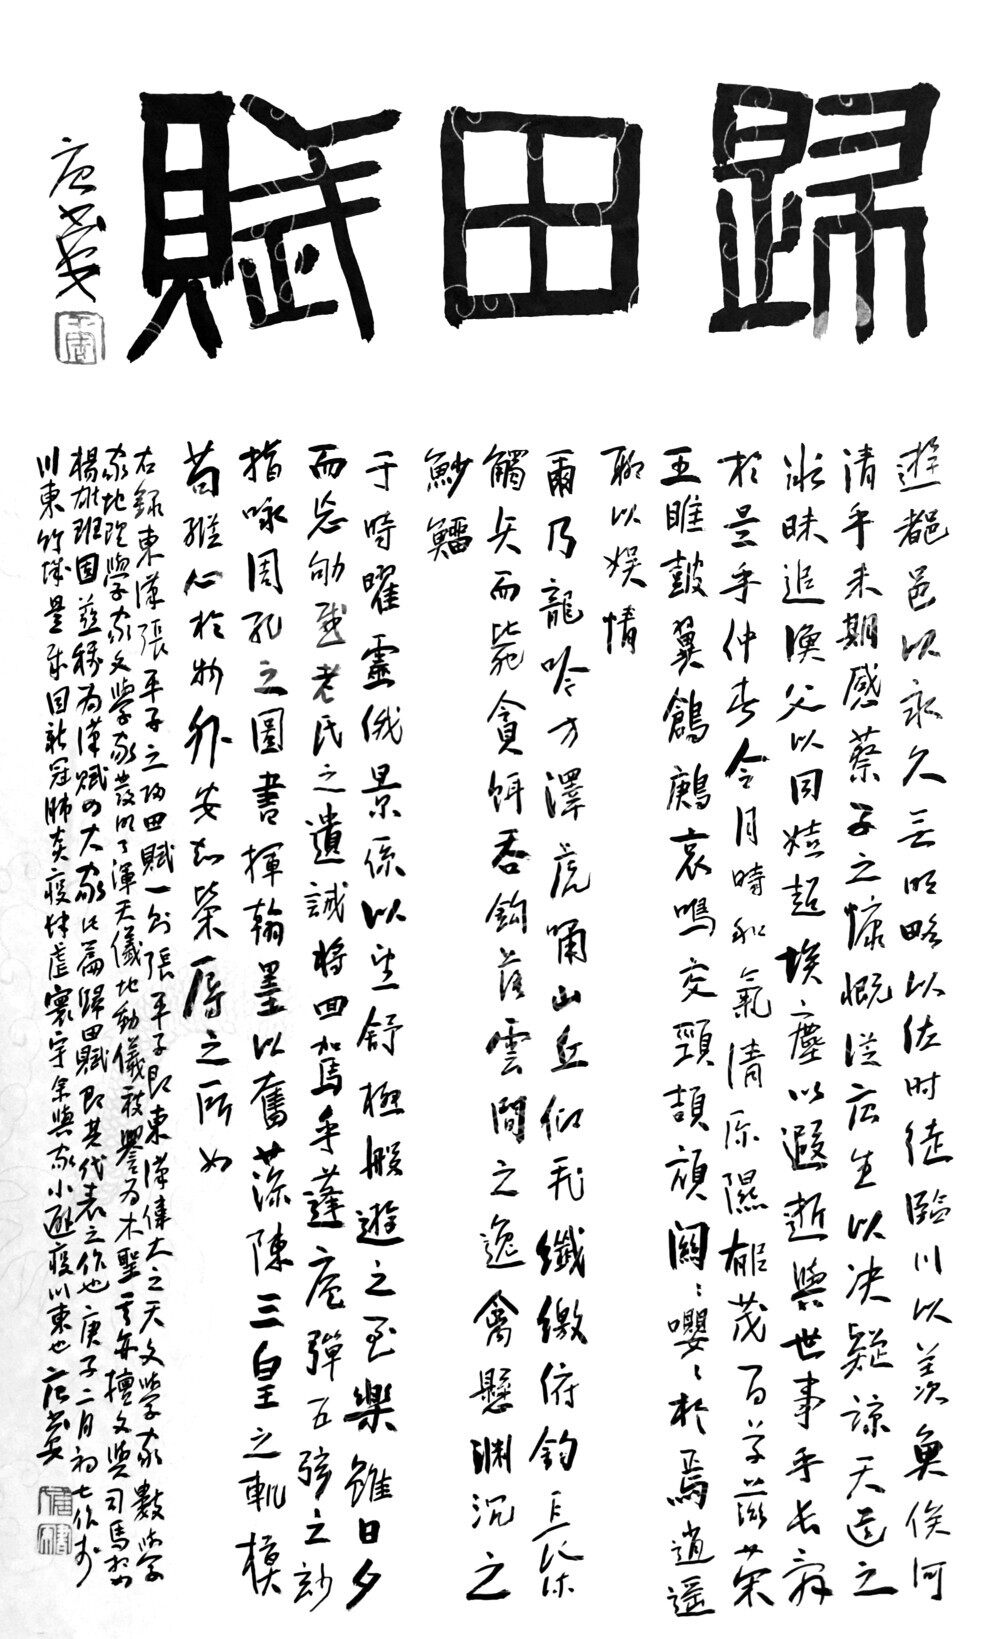 歸田賦
遊都邑以永久无明略以佐时徒臨川以羨魚俟河
清乎未期感蔡子之慷慨從唐生以决疑諒天道之
微昧追漁父以同嬉超埃塵以遐逝與世事乎長辭
於是乎仲春令月時和氣清原隰郁茂百草滋榮
王雎鼓翼鶬鶊哀鳴交頸頡頏關〻嚶〻於焉逍遥
聊以娱情
爾乃龍吟方澤虎嘯山丘仰飛纖繳俯釣長流
觸矢而斃貪餌吞鈎落雲間之逸禽懸淵沉之
魦鰡
于時曜靈俄景係以望舒極般遊之至樂雖日夕
而忘劬感老氏之遺誡將回駕乎蓬廬彈五弦之妙
指咏周孔之圖書揮翰墨以奮藻陳三皇之軌模
苟縱心於物外安知榮辱之所如
右錄東漢張平子之歸田賦一則張平子即東漢偉大之天文學家數學
家地理學家文學家發明了渾天儀地動儀被譽为木聖其亦擅文與司馬相如
楊雄班固並稱为漢賦四大家此篇歸田賦即其代表之作也庚子二月初七作於
川東竹城是年因新冠肺炎疫肆虐寰宇余與家小避疫川東也